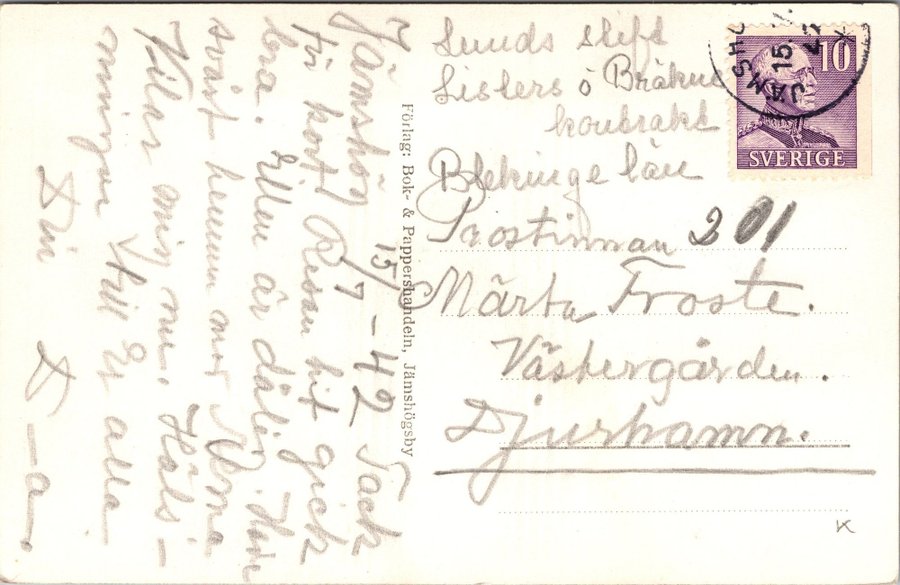 Jämshög 15/7 -42 Tack
för kort Resan hit gick
bra. Ellen är dålig. Hon
svårt hennes
Vilar mig nu. Häls-
ningar till Er alla
Din
A-a.
Förlag: Bok- & Pappershandeln, Jämshögsby
Lunds stift
Listers ö Bräkne
kontrakt
Blekinge län
Prostinnan 201
Märta Froste.
Västergården.
Djurhamn.
JÄMSHÖ
15.
10
SVERIGE
K